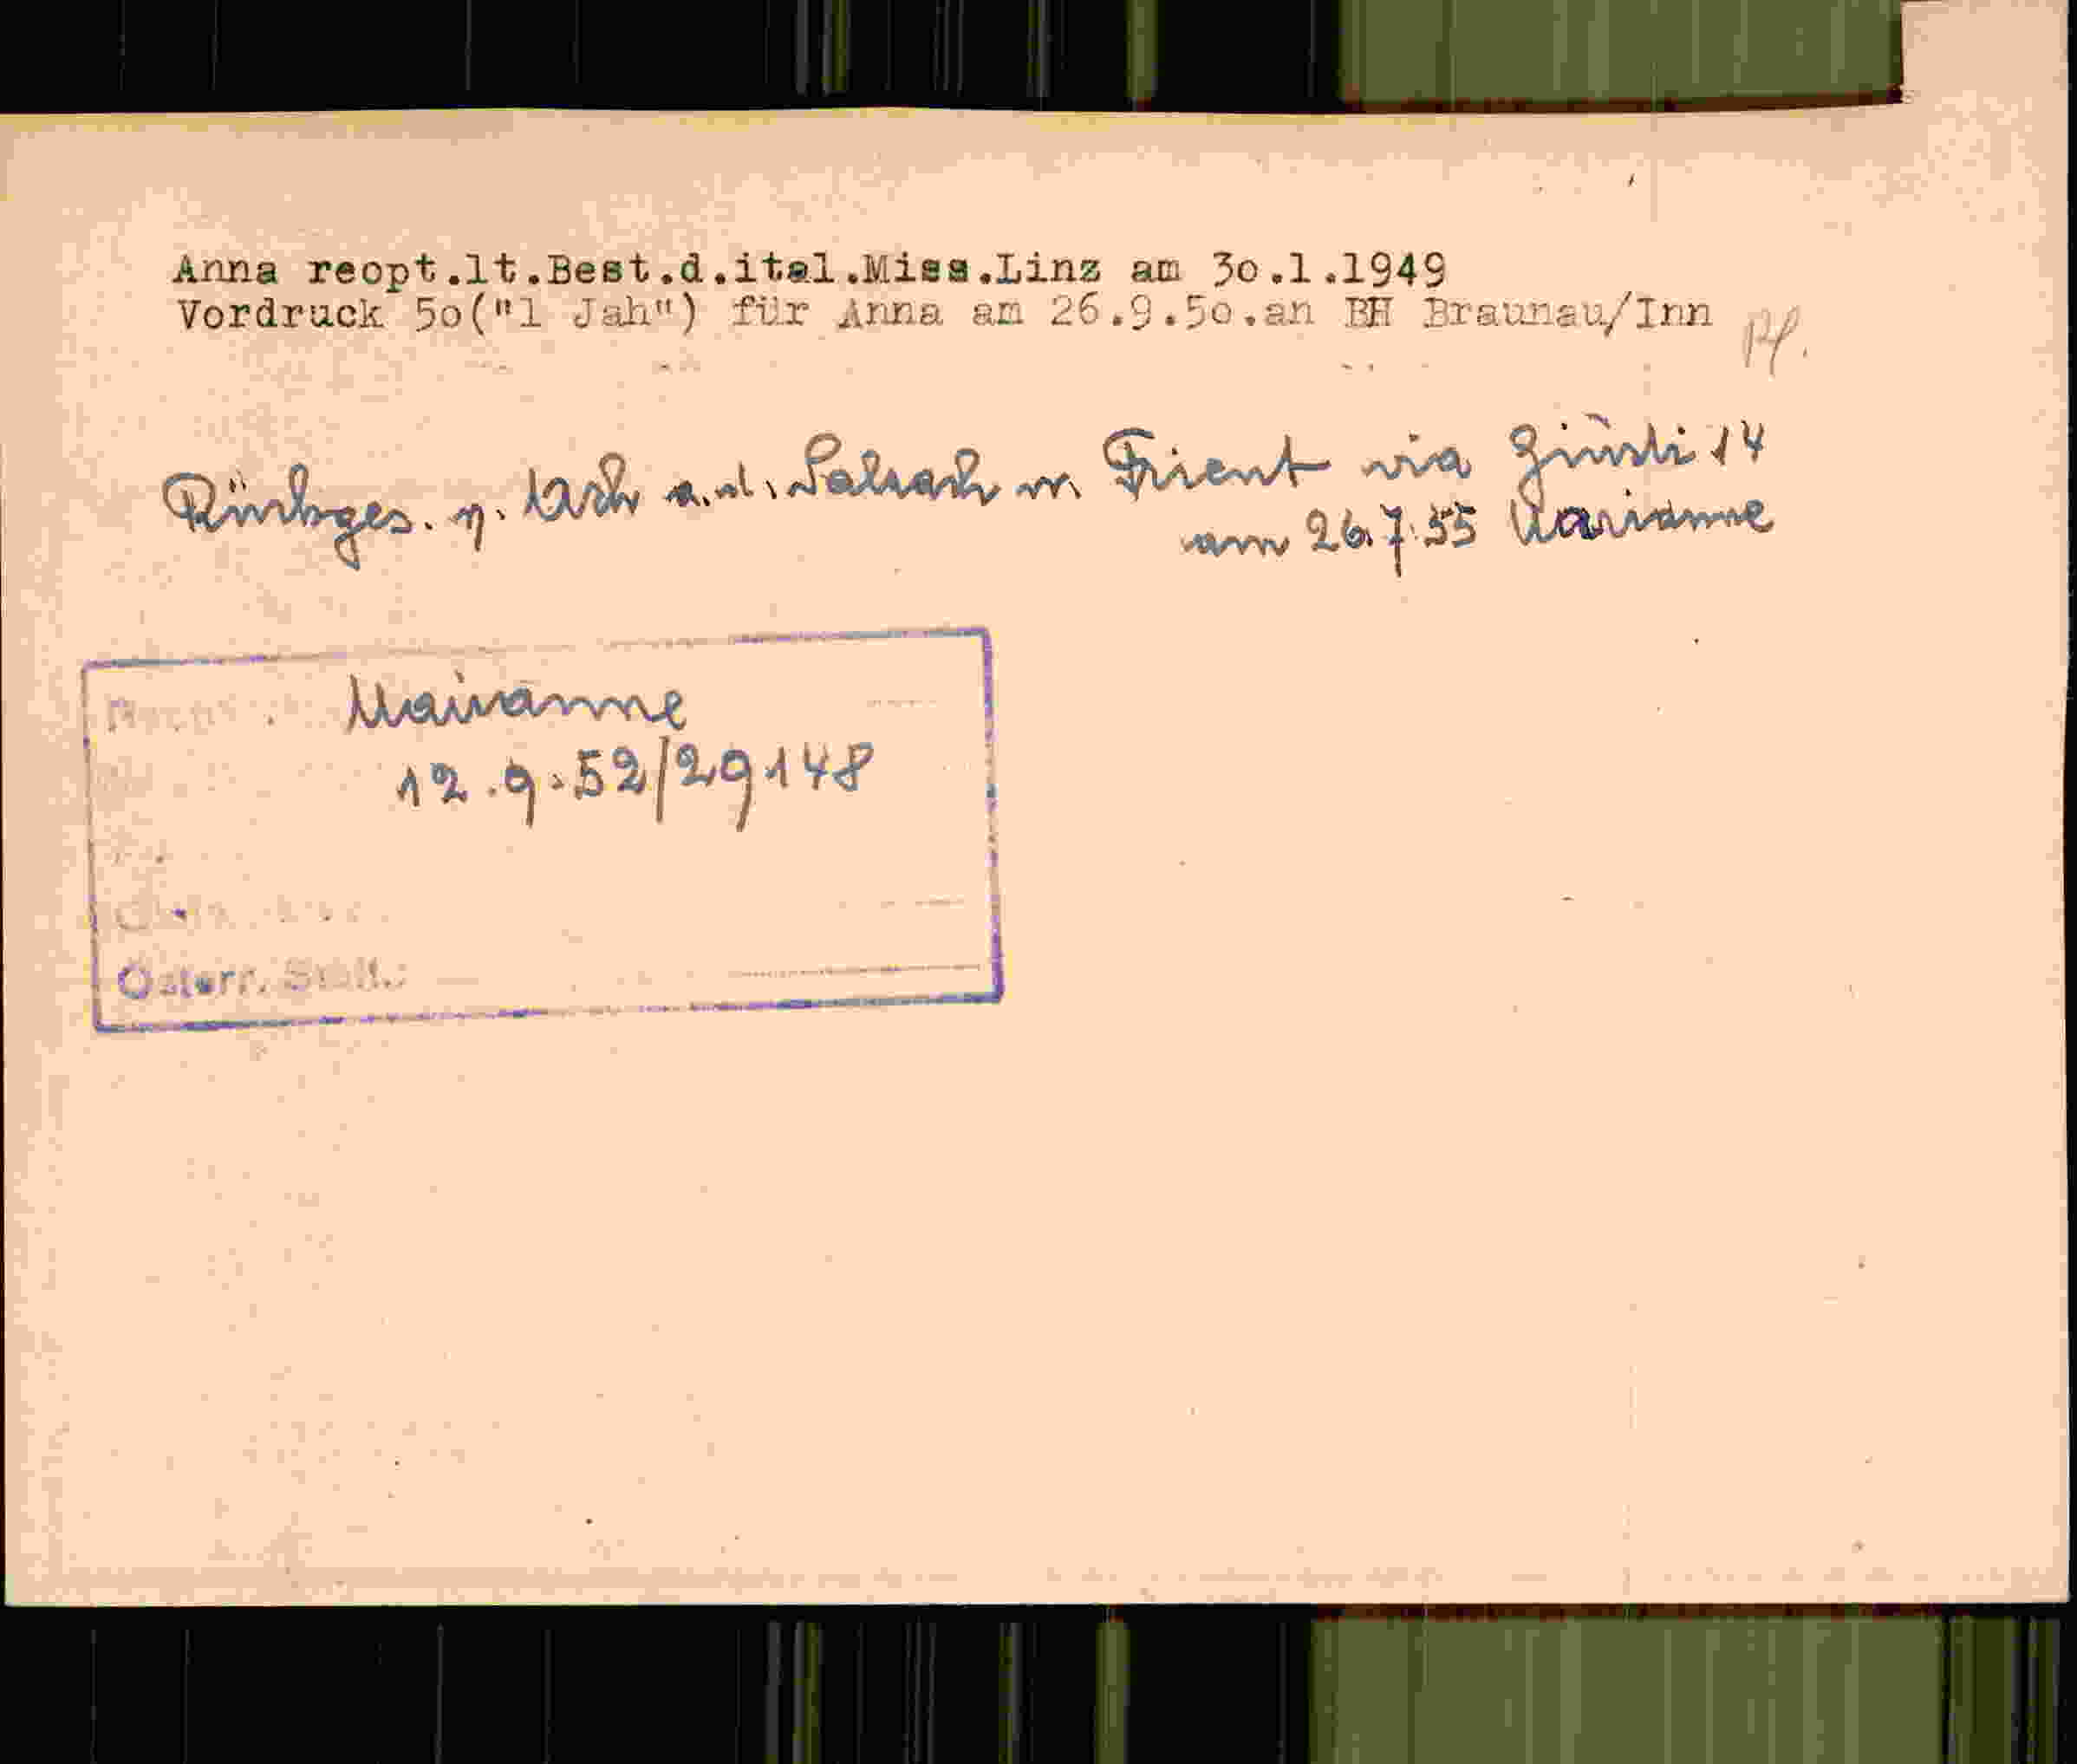 Anna reopt.lt.Best.d.ital.Miss.Linz am 3o.1.1949
Vordruck 5o("1 Jah") für Anna am 26.9.5o.an BH Braunau/Inn
Rückges. v. Ach a.d. Salzach n. Trient via Giusti 14
am 26.7.55 Marianne
Marianne
12.9.52/29148
Österr. Stall.: